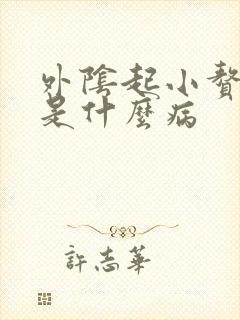 外陰起小贅
是什麼病
許志華